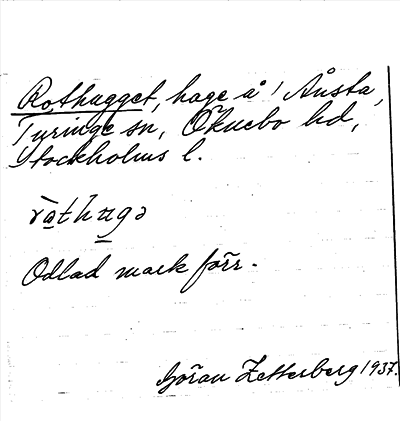 Rothugget, hage å 1 Ånsta,
Turinge sn, Öknebo hd,
Stockholms l.
Odlad mark förr.
Göran Zetterberg 1937.